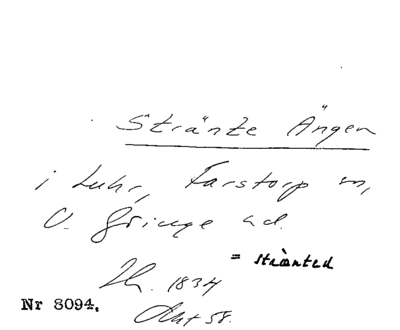 Stränte Ängen
i Luhr, Farstorp sn,
V. Göinge hd.
= stränted
Lh. 1834
Akt 58.
Nr 3094.